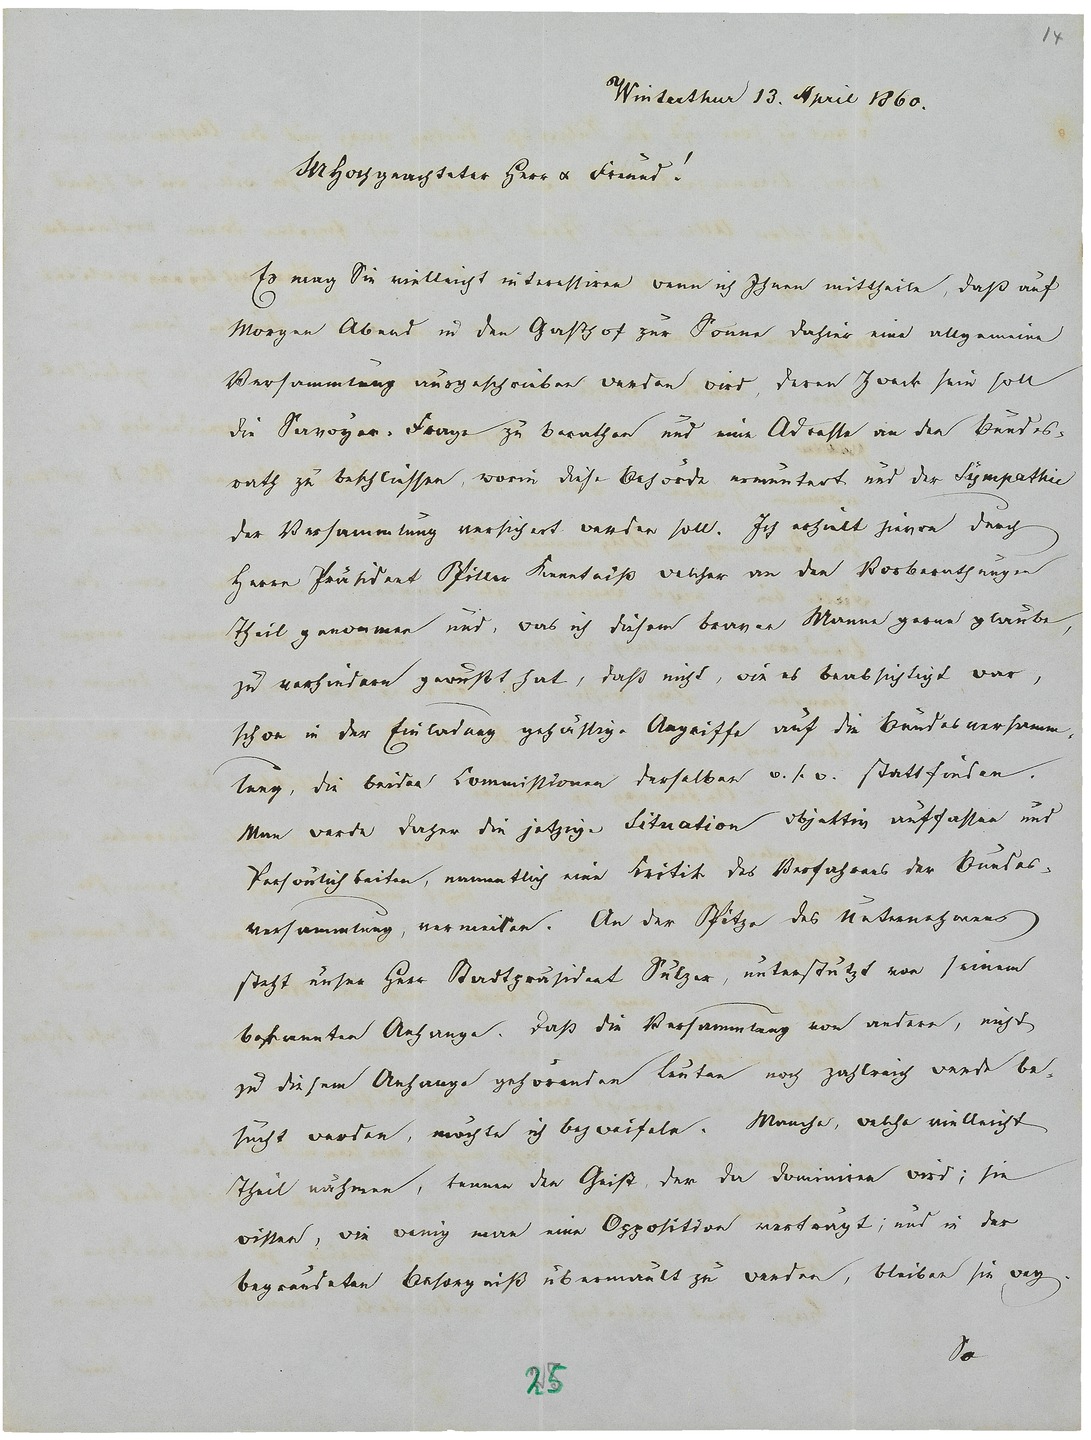 14
Winterthur 13. April 1860.
Hochgeachteter Herr & Freund!
Es mag Sie vielleicht interessiren wenn ich Ihnen mittheile, daß auf
Morgen Abend in den Gasthof zur Sonne dahier eine allgemeine
Versammlung ausgeschrieben werden wird, deren Zweck sein soll
die Savoyer-Frage zu berathen und eine Adresse an den Bundes-
rath zu beschliessen, worin diese Behörde ermuntert und der Sympathie
der Versammlung versichert werden soll. Ich erhielt hievon durch
Herrn Präsident Spiller Kenntniß welcher an den Vorberathungen
Theil genommen und, was ich diesem braven Manne gerne glaube,
zu verhindern gewußt hat, daß nicht, wie es beabsichtigt war,
schon in der Einladung gehässige Angriffe auf die Bundesversamm-
lung, die beiden Commissionen derselben u. s. w. stattfinden.
Man werde daher die jetzige Situation objektiv auffassen und
Persönlichkeiten, namentlich eine Kritik des Verfahrens der Bundes-
versammlung, vermeiden. An der Spitze des Unternehmens
steht unser Herr Stadtpräsident Sulzer, unterstützt von seinem
bekannten Anhange. Daß die Versammlung von andern, nicht
zu diesem Anhange gehörenden Leuten noch zahlreich werde be-
sucht werden, möchte ich bezweifeln. Manche, welche vielleicht
Theil nähmen, kennen den Geist, der da dominiren wird; sie
wissen, wie wenig man eine Opposition verträgt; und in der
begründeten Besorgniß übermault zu werden, bleiben sie weg.
So
25